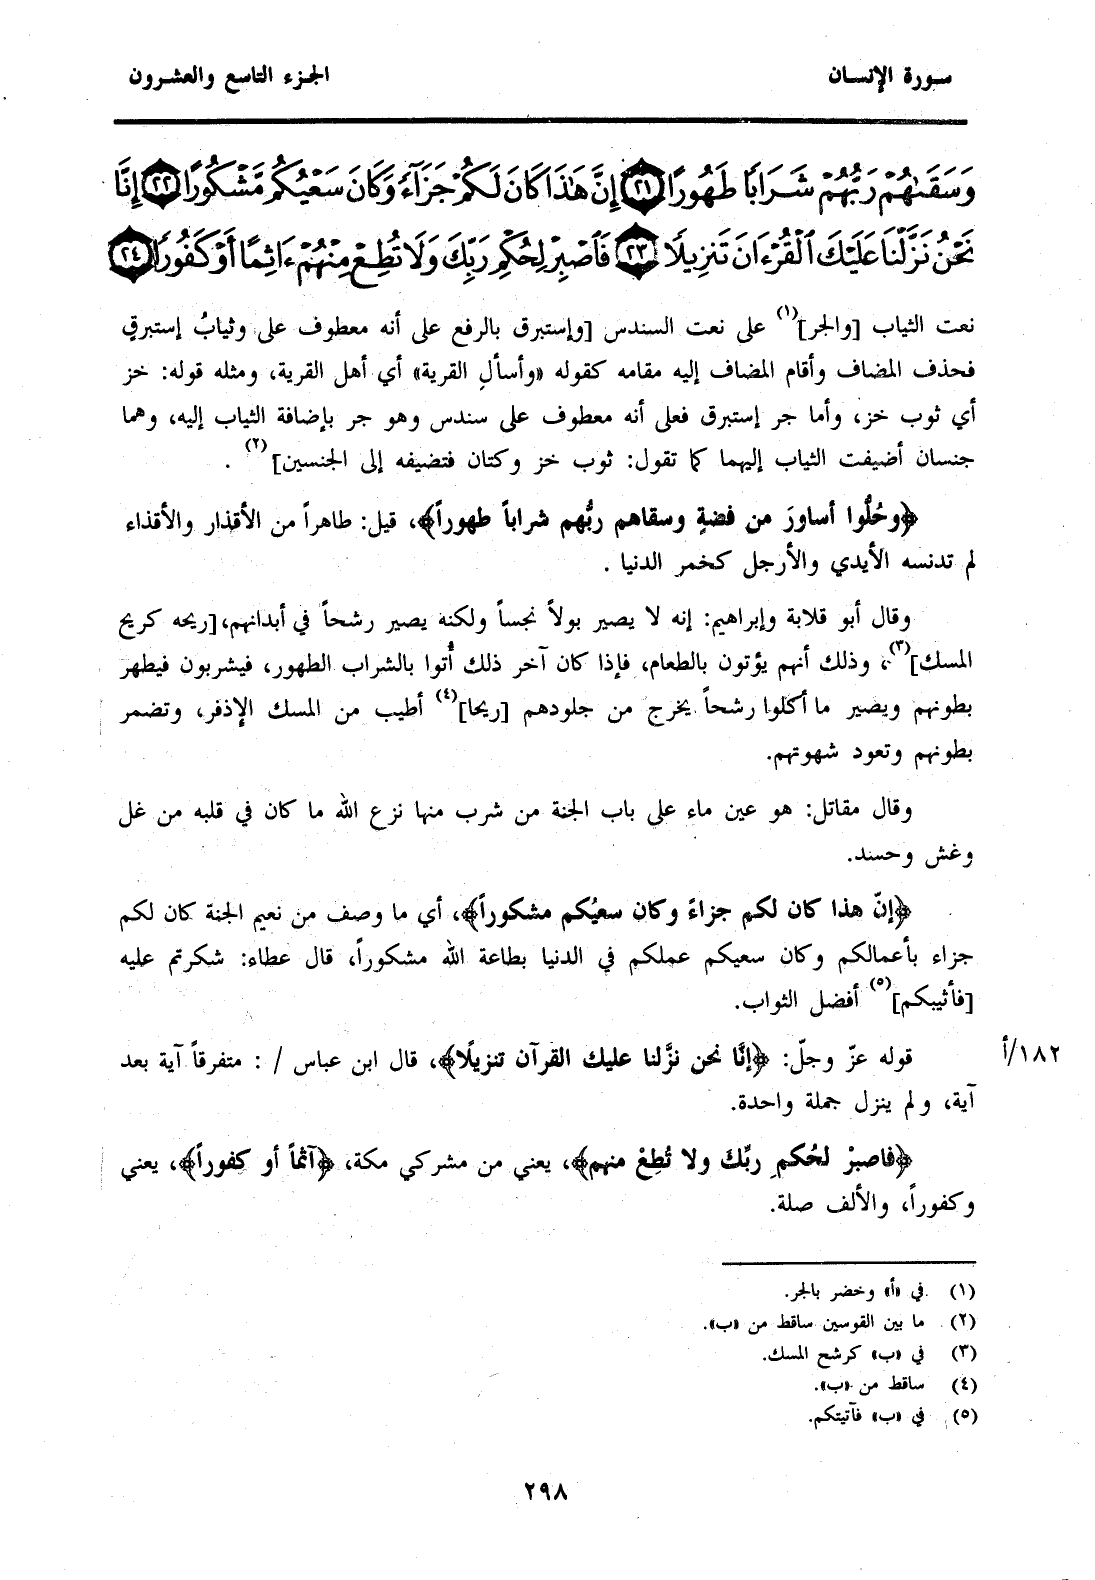 سورة الإنسان الجزء التاسع والعشرون
وَسَقَىٰهُمْ رَبُّهُمْ شَرَابًا طَهُورًا ٢١ إِنَّ هَٰذَا كَانَ لَكُمْ جَزَآءً وَكَانَ سَعْيُكُم مَّشْكُورًا ٢٢ إِنَّا
نَحْنُ نَزَّلْنَا عَلَيْكَ ٱلْقُرْءَانَ تَنزِيلًا ٢٣ فَٱصْبِرْ لِحُكْمِ رَبِّكَ وَلَا تُطِعْ مِنْهُمْ ءَاثِمًا أَوْ كَفُورًا ٢٤
نعت الثياب [والجر](١) على نعت السندس [وإستبرق بالرفع على أنه معطوف على وثيابُ إستبرقٍ
فحذف المضاف وأقام المضاف إليه مقامه كقوله «وأسألِ القرية» أي أهل القرية، ومثله قوله: خز
أي ثوب خز، وأما جر إستبرق فعلى أنه معطوف على سندس وهو جر بإضافة الثياب إليه، وهما
جنسان أضيفت الثياب إليهما كما تقول: ثوب خز وكتان فتضيفه إلى الجنسين](٢) .
﴿وحُلُّوا أساورَ من فضةٍ وسقاهم ربُّهم شراباً طهوراً﴾، قيل: طاهراً من الأقذار والأقذاء
لم تدنسه الأيدي والأرجل كخمر الدنيا .
وقال أبو قلابة وإبراهيم: إنه لا يصير بولاً نجساً ولكنه يصير رشحاً في أبدانهم، [ريحه كريح
المسك](٣)، وذلك أنهم يؤتون بالطعام، فإذا كان آخر ذلك أُتوا بالشراب الطهور، فيشربون فيطهر
بطونهم ويصير ما أكلوا رشحاً يخرج من جلودهم [ريحا](٤) أطيب من المسك الإذفر، وتضمر
بطونهم وتعود شهوتهم.
وقال مقاتل: هو عين ماء على باب الجنة من شرب منها نزع الله ما كان في قلبه من غل
وغش وحسد.
﴿إنّ هذا كان لكم جزاءً وكان سعيُكم مشكوراً﴾، أي ما وصف من نعيم الجنة كان لكم
جزاء بأعمالكم وكان سعيكم عملكم في الدنيا بطاعة الله مشكوراً، قال عطاء: شكرتم عليه
[فأثيبكم](٥) أفضل الثواب.
قوله عزّ وجلّ: ﴿إنَّا نحن نزَّلنا عليك القرآن تنزيلًا﴾، قال ابن عباس / : متفرقاً آية بعد ١٨٢/أ
آية، ولم ينزل جملة واحدة.
﴿فاصبرْ لحُكمِ ربِّك ولا تُطِعْ منهم﴾، يعني من مشركي مكة، ﴿آثماً أو كفوراً﴾، يعني
وكفوراً، والألف صلة.
(١) في «أ» وخضر بالجر.
(٢) ما بين القوسين ساقط من «ب».
(٣) في «ب» كرشح المسك.
(٤) ساقط من «ب».
(٥) في «ب» فآتيتكم.
٢٩٨